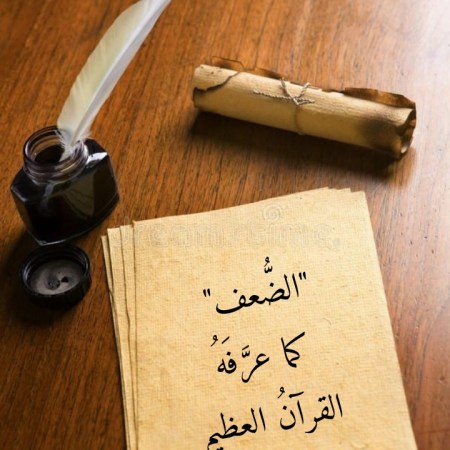 "الضُّعف"
كما عرَّفَهُ
القرآنُ العظيم